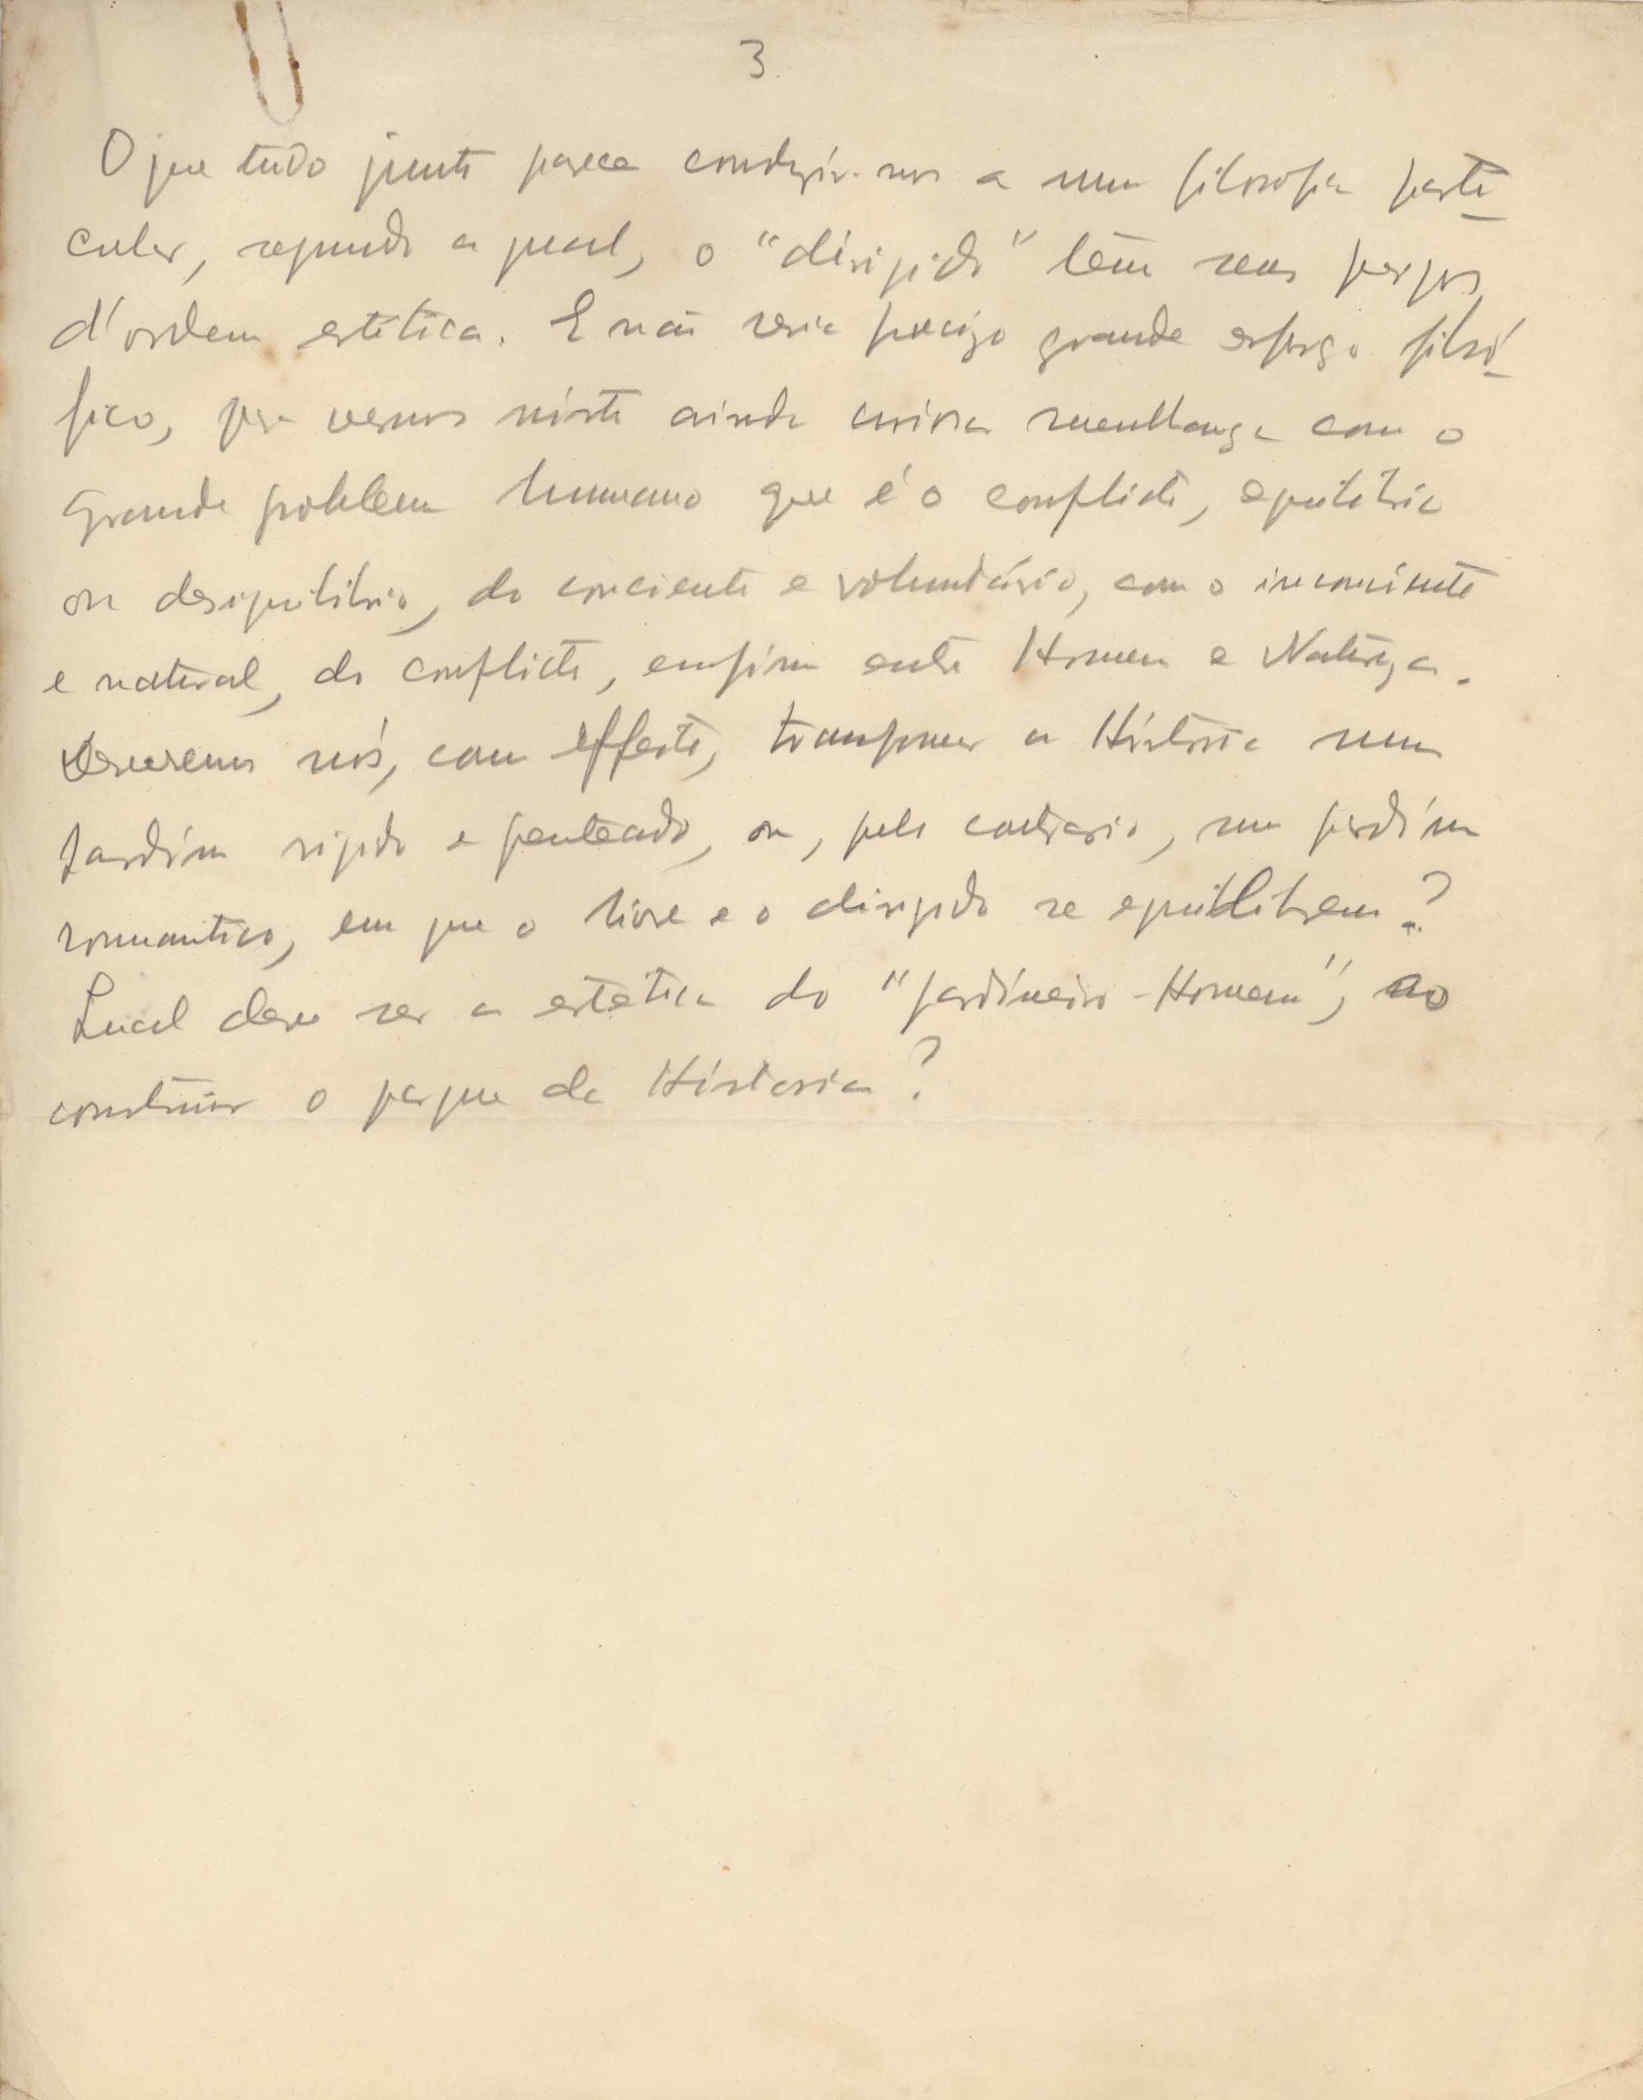 3
O que tudo junto parece conduzir-nos a uma filosofia parti-
cular, segundo a qual, o "dirigido" tem seus perigos
d'ordem estética. E não seria preciso grande esforço filosó-
fico, para vermos nisto ainda curiosa semelhança com o
grande problema humano que é o conflicto, equilibrio
ou desiquilibrio, do conciente e voluntário, com o inconciente
e natural, do conflicto, emfim entre Homem e Natureza.
Deveremos nós, com effeito, transpomer a História num
jardim rigido e penteado, ou, pelo contrario, num jardim
romantico, em que o livre e o dirigido se equilibrem?
Qual deve ser a estetica do "jardineiro-Homem", ao
construir o parque da Historia?